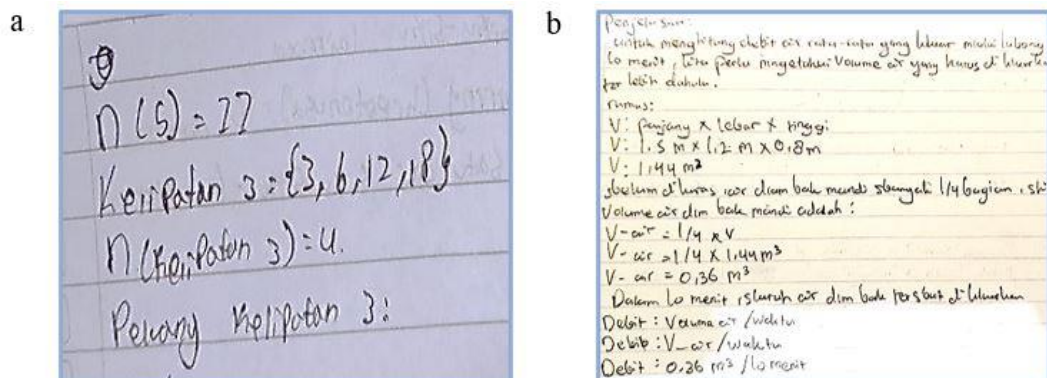 a
n(S) = 77
Kelipatan 3 = {3, 6, 12, 18}
n(Kelipatan 3) = 4.
Peluang Kelipatan 3:
b
Penjelasan:
untuk menghitung debit air rata-rata yang keluar melalui lubang
lo menit, kita perlu mngetahui volume air yang harus di
ter lebih dahulu.
rumus:
V: panjang x lebar x tinggi
V: 1.5 m x 1,2 m x 0,8 m
V: 1,44 m³
sbelum di kuras, air dlam bak mandi sbanyak 1/4 bagian,
Volume air dlm bak mandi adalah:
V-air = 1/4 x V
V-air = 1/4 x 1,44 m³
V-air = 0,36 m³
Dalam lo menit, sluruh air dlm bak tersbut di
Debit : Volume air / waktu
Debit : V_air / waktu
Debit : 0,36 m³ / lo menit